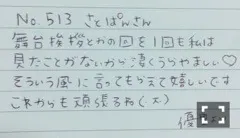 No. 513 さくぱんさん
舞台挨拶とかの回を1回も私は
見たことがないから凄くうらやましい♡
そういう風に言ってもらえて嬉しいです
これからも頑張るね(·x·)
優